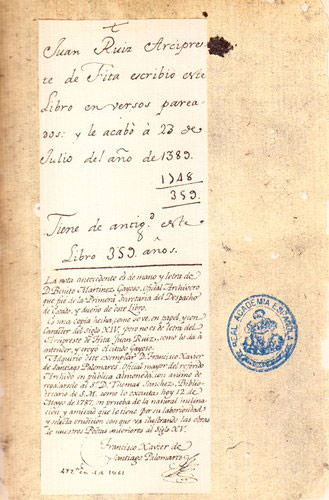 Juan Ruiz Arcipres
te de Fita escribio este
Libro en versos parea
dos: y le acabò à 23 de
Julio del año de 1389.
1748
359
Tiene de antigd. este
Libro 359 años.
La nota antecedente es de mano y letra de
Dn. Benito Martinez Gayoso, Oficial Archivero
que fué de la Primera Secretaria del Despacho
de Estado, y dueño de este Libro.
Es una copia hecha, como se ve, en papel, y con
carácter del siglo XIV, pero no es de letra del
Arcipreste de Fita Juan Ruiz, como lo da à
entender, y creyó el citado Gayoso.
Adquirió este exemplar Dn. Francisco Xavier
de Santiago Palomares, Oficial mayor del referido
Archivo en pública almoneda con animo de
regalarselo al Sr. Dn. Thomas Sanchez, Biblio-
thecario de S.M. como lo executa hoy 12 de
Mayo de 1787, en prueba de la natural inclina-
cion y amistad que le tiene por su laboriosidad
y selecta erudicion con que va ilustrando las obras
de nuestros Poetas anteriores al Siglo XV.
Francisco Xavier de
Santiago Palomares
REAL ACADEMIA ESPAÑOLA